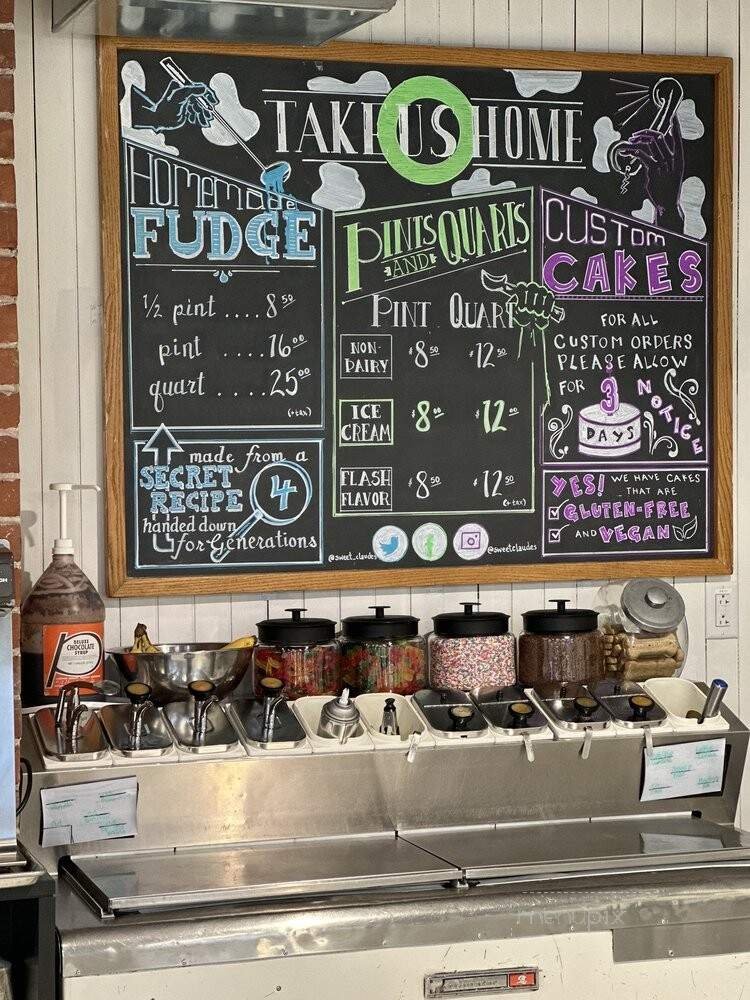 TAKE US HOME
HOMEMADE
FUDGE
½ pint .... 8 50
pint ..... 16 00
quart ..... 25 00
(+tax)
made from a
SECRET
RECIPE
4
handed down
for Generations
PINTS
AND
QUARTS
PINT QUART
NON-
DAIRY
$8 50 $12 50
ICE
CREAM
$8 00 $12 00
FLASH
FLAVOR
$8 50 $12 50
(+tax)
@sweet_claudes
@sweetclaudes
CUSTOM
CAKES
FOR ALL
CUSTOM ORDERS
PLEASE ALLOW
FOR 3
DAYS
NOTICE
YES! WE HAVE CAKES
THAT ARE
GLUTEN-FREE
AND VEGAN
DELUXE
CHOCOLATE
SYRUP
menupix